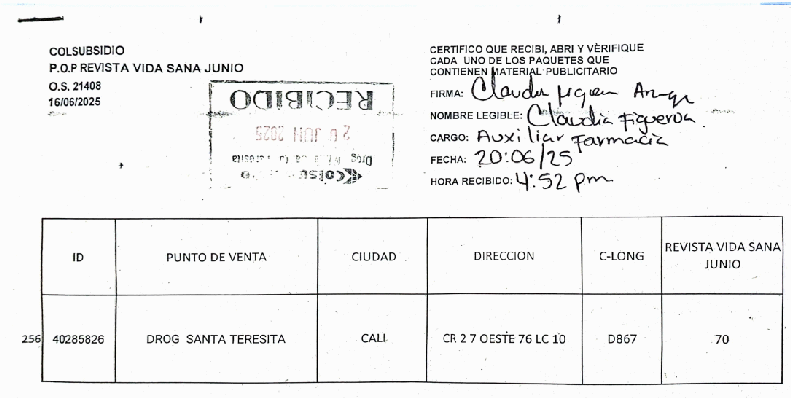 COLSUBSIDIO
P.O.P REVISTA VIDA SANA JUNIO
O.S. 21408
16/06/2025
RECIBIDO
20 JUN 2025
Drog
CERTIFICO QUE RECIBI, ABRI Y VERIFIQUE
CADA UNO DE LOS PAQUETES QUE
CONTIENEN MATERIAL PUBLICITARIO
FIRMA: Claudia Figueroa
NOMBRE LEGIBLE: Claudia Figueroa
CARGO: Auxiliar Farmacia
FECHA: 20:06/25
HORA RECIBIDO: 4:52 pm
ID PUNTO DE VENTA CIUDAD DIRECCION C-LONG REVISTA VIDA SANA JUNIO
256 40285826 DROG SANTA TERESITA CALI CR 2 7 OESTE 76 LC 10 D867 70